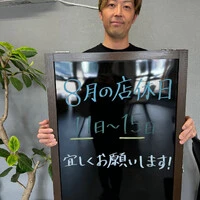 8月の店休日
11日〜15日
宜しくお願いします!